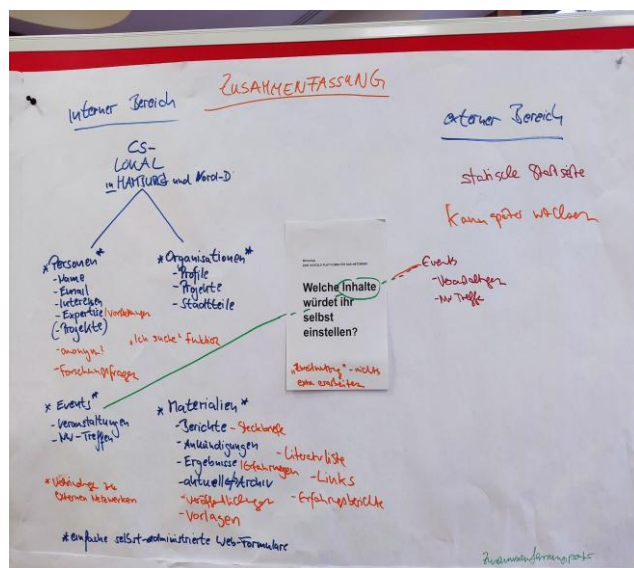 ZUSAMMENFASSUNG
Interner Bereich
CS-
LOKAL
in HAMBURG und Nord-D
* Personen *
- Name
- Email
- Interessen
- Expertise / Vorlesungen
(- Projekte)
- anonym?
- Forschungsfragen
"Ich suche" Funktion
* Organisationen *
- Profile
- Projekte
- Stadtteile
* Events *
- Veranstaltungen
- NW-Treffen
* Verbindung zu
externen Netzwerken
* Materialien *
- Berichte - Steckbriefe
- Ankündigungen
- Ergebnisse / Erfahrungen
- aktuelles/Archiv
- Veröffentlichungen
- Vorlagen
- Literaturliste
- Links
- Erfahrungsberichte
* einfache selbst-administrierte Web-Formulare
Welche Inhalte
würdet ihr
selbst
einstellen?
- nichts
extra erarbeiten
externer Bereich
statische Startseite
kann später wachsen
- Events
- Veranstaltungen
- NW Treffen